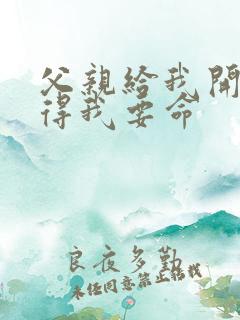 父親給我開
得我要命
良夜多勤
未经同意禁止转载